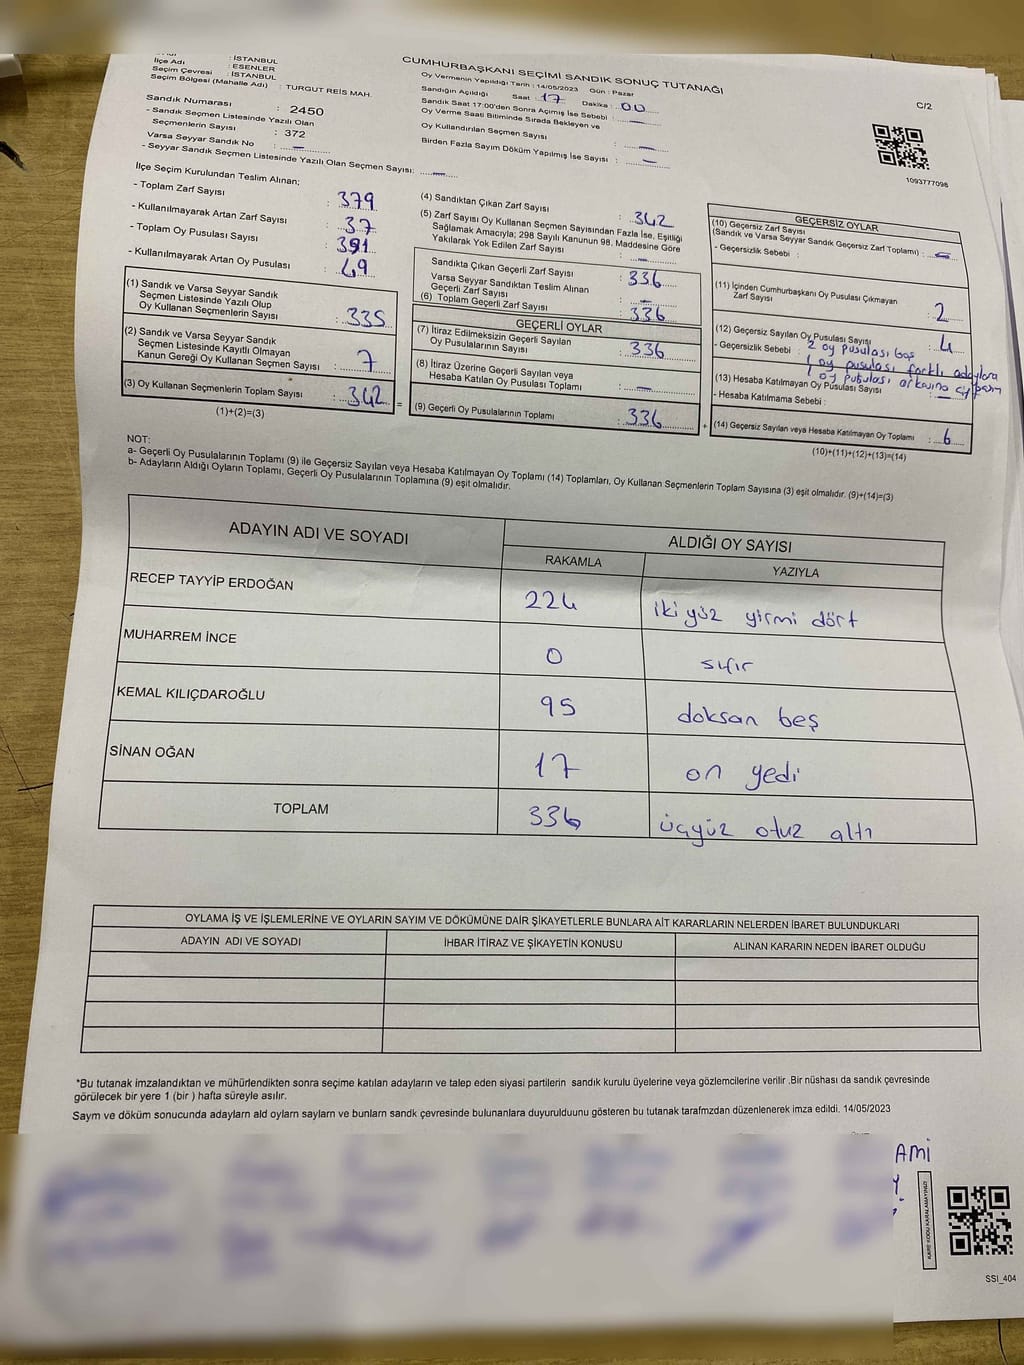 : İSTANBUL
İlçe Adı : ESENLER
Seçim Çevresi : İSTANBUL
Seçim Bölgesi (Mahalle Adı) : TURGUT REİS MAH.
Sandık Numarası : 2450
- Sandık Seçmen Listesinde Yazılı Olan
Seçmenlerin Sayısı : 372
Varsa Seyyar Sandık No : —
- Seyyar Sandık Seçmen Listesinde Yazılı Olan Seçmen Sayısı: —
CUMHURBAŞKANI SEÇİMİ SANDIK SONUÇ TUTANAĞI
Oy Vermenin Yapıldığı Tarih : 14/05/2023 Gün : Pazar
Sandığın Açıldığı Saat : 17 Dakika : 00
Sandık Saat 17:00'den Sonra Açımış İse Sebebi : —
Oy Verme Saati Bitiminde Sırada Bekleyen ve
Oy Kullandırılan Seçmen Sayısı : —
Birden Fazla Sayım Döküm Yapılmış İse Sayısı : —
C/2
1093777098
İlçe Seçim Kurulundan Teslim Alınan;
- Toplam Zarf Sayısı : 379
- Kullanılmayarak Artan Zarf Sayısı : 37
- Toplam Oy Pusulası Sayısı : 391
- Kullanılmayarak Artan Oy Pusulası : 49
(1) Sandık ve Varsa Seyyar Sandık
Seçmen Listesinde Yazılı Olup
Oy Kullanan Seçmenlerin Sayısı : 335
(2) Sandık ve Varsa Seyyar Sandık
Seçmen Listesinde Kayıtlı Olmayan
Kanun Gereği Oy Kullanan Seçmen Sayısı : 7
(3) Oy Kullanan Seçmenlerin Toplam Sayısı : 342 =
(1)+(2)=(3)
(4) Sandıktan Çıkan Zarf Sayısı : 342
(5) Zarf Sayısı Oy Kullanan Seçmen Sayısından Fazla İse, Eşitliği
Sağlamak Amacıyla; 298 Sayılı Kanunun 98. Maddesine Göre
Yakılarak Yok Edilen Zarf Sayısı : —
Sandıkta Çıkan Geçerli Zarf Sayısı : 336
Varsa Seyyar Sandıktan Teslim Alınan
Geçerli Zarf Sayısı : —
(6) Toplam Geçerli Zarf Sayısı : 336
GEÇERLİ OYLAR
(7) İtiraz Edilmeksizin Geçerli Sayılan
Oy Pusulalarının Sayısı : 336
(8) İtiraz Üzerine Geçerli Sayılan veya
Hesaba Katılan Oy Pusulası Toplamı : —
(9) Geçerli Oy Pusulalarının Toplamı : 336 +
GEÇERSİZ OYLAR
(10) Geçersiz Zarf Sayısı
(Sandık ve Varsa Seyyar Sandık Geçersiz Zarf Toplamı) :
- Geçersizlik Sebebi :
(11) İçinden Cumhurbaşkanı Oy Pusulası Çıkmayan
Zarf Sayısı : 2
(12) Geçersiz Sayılan Oy Pusulası Sayısı : 4
- Geçersizlik Sebebi : 2 oy pusulası boş
1 oy pusulası farklı adaylara
1 oy pusulası arkasına
(13) Hesaba Katılmayan Oy Pusulası Sayısı : —
- Hesaba Katılmama Sebebi :
(14) Geçersiz Sayılan veya Hesaba Katılmayan Oy Toplamı : 6
(10)+(11)+(12)+(13)=(14)
NOT:
a- Geçerli Oy Pusulalarının Toplamı (9) ile Geçersiz Sayılan veya Hesaba Katılmayan Oy Toplamı (14) Toplamları, Oy Kullanan Seçmenlerin Toplam Sayısına (3) eşit olmalıdır. (9)+(14)=(3)
b- Adayların Aldığı Oyların Toplamı, Geçerli Oy Pusulalarının Toplamına (9) eşit olmalıdır.
ADAYIN ADI VE SOYADI ALDIĞI OY SAYISI
RAKAMLA YAZIYLA
RECEP TAYYİP ERDOĞAN 224 iki yüz yirmi dört
MUHARREM İNCE 0 sıfır
KEMAL KILIÇDAROĞLU 95 doksan beş
SİNAN OĞAN 17 on yedi
TOPLAM 336 üçyüz otuz altı
OYLAMA İŞ VE İŞLEMLERİNE VE OYLARIN SAYIM VE DÖKÜMÜNE DAİR ŞİKAYETLERLE BUNLARA AİT KARARLARIN NELERDEN İBARET BULUNDUKLARI
ADAYIN ADI VE SOYADI İHBAR İTİRAZ VE ŞİKAYETİN KONUSU ALINAN KARARIN NEDEN İBARET OLDUĞU
*Bu tutanak imzalandıktan ve mühürlendikten sonra seçime katılan adayların ve talep eden siyasi partilerin sandık kurulu üyelerine veya gözlemcilerine verilir .Bir nüshası da sandık çevresinde
görülecek bir yere 1 (bir ) hafta süreyle asılır.
Sayım ve döküm sonucunda adayların ald oyların sayları ve bunların sandk çevresinde bulunanlara duyurulduunu gösteren bu tutanak tarafmzdan düzenlenerek imza edildi. 14/05/2023
AMİ
KARE KODU KARALAMAYINIZ!
SSİ_404